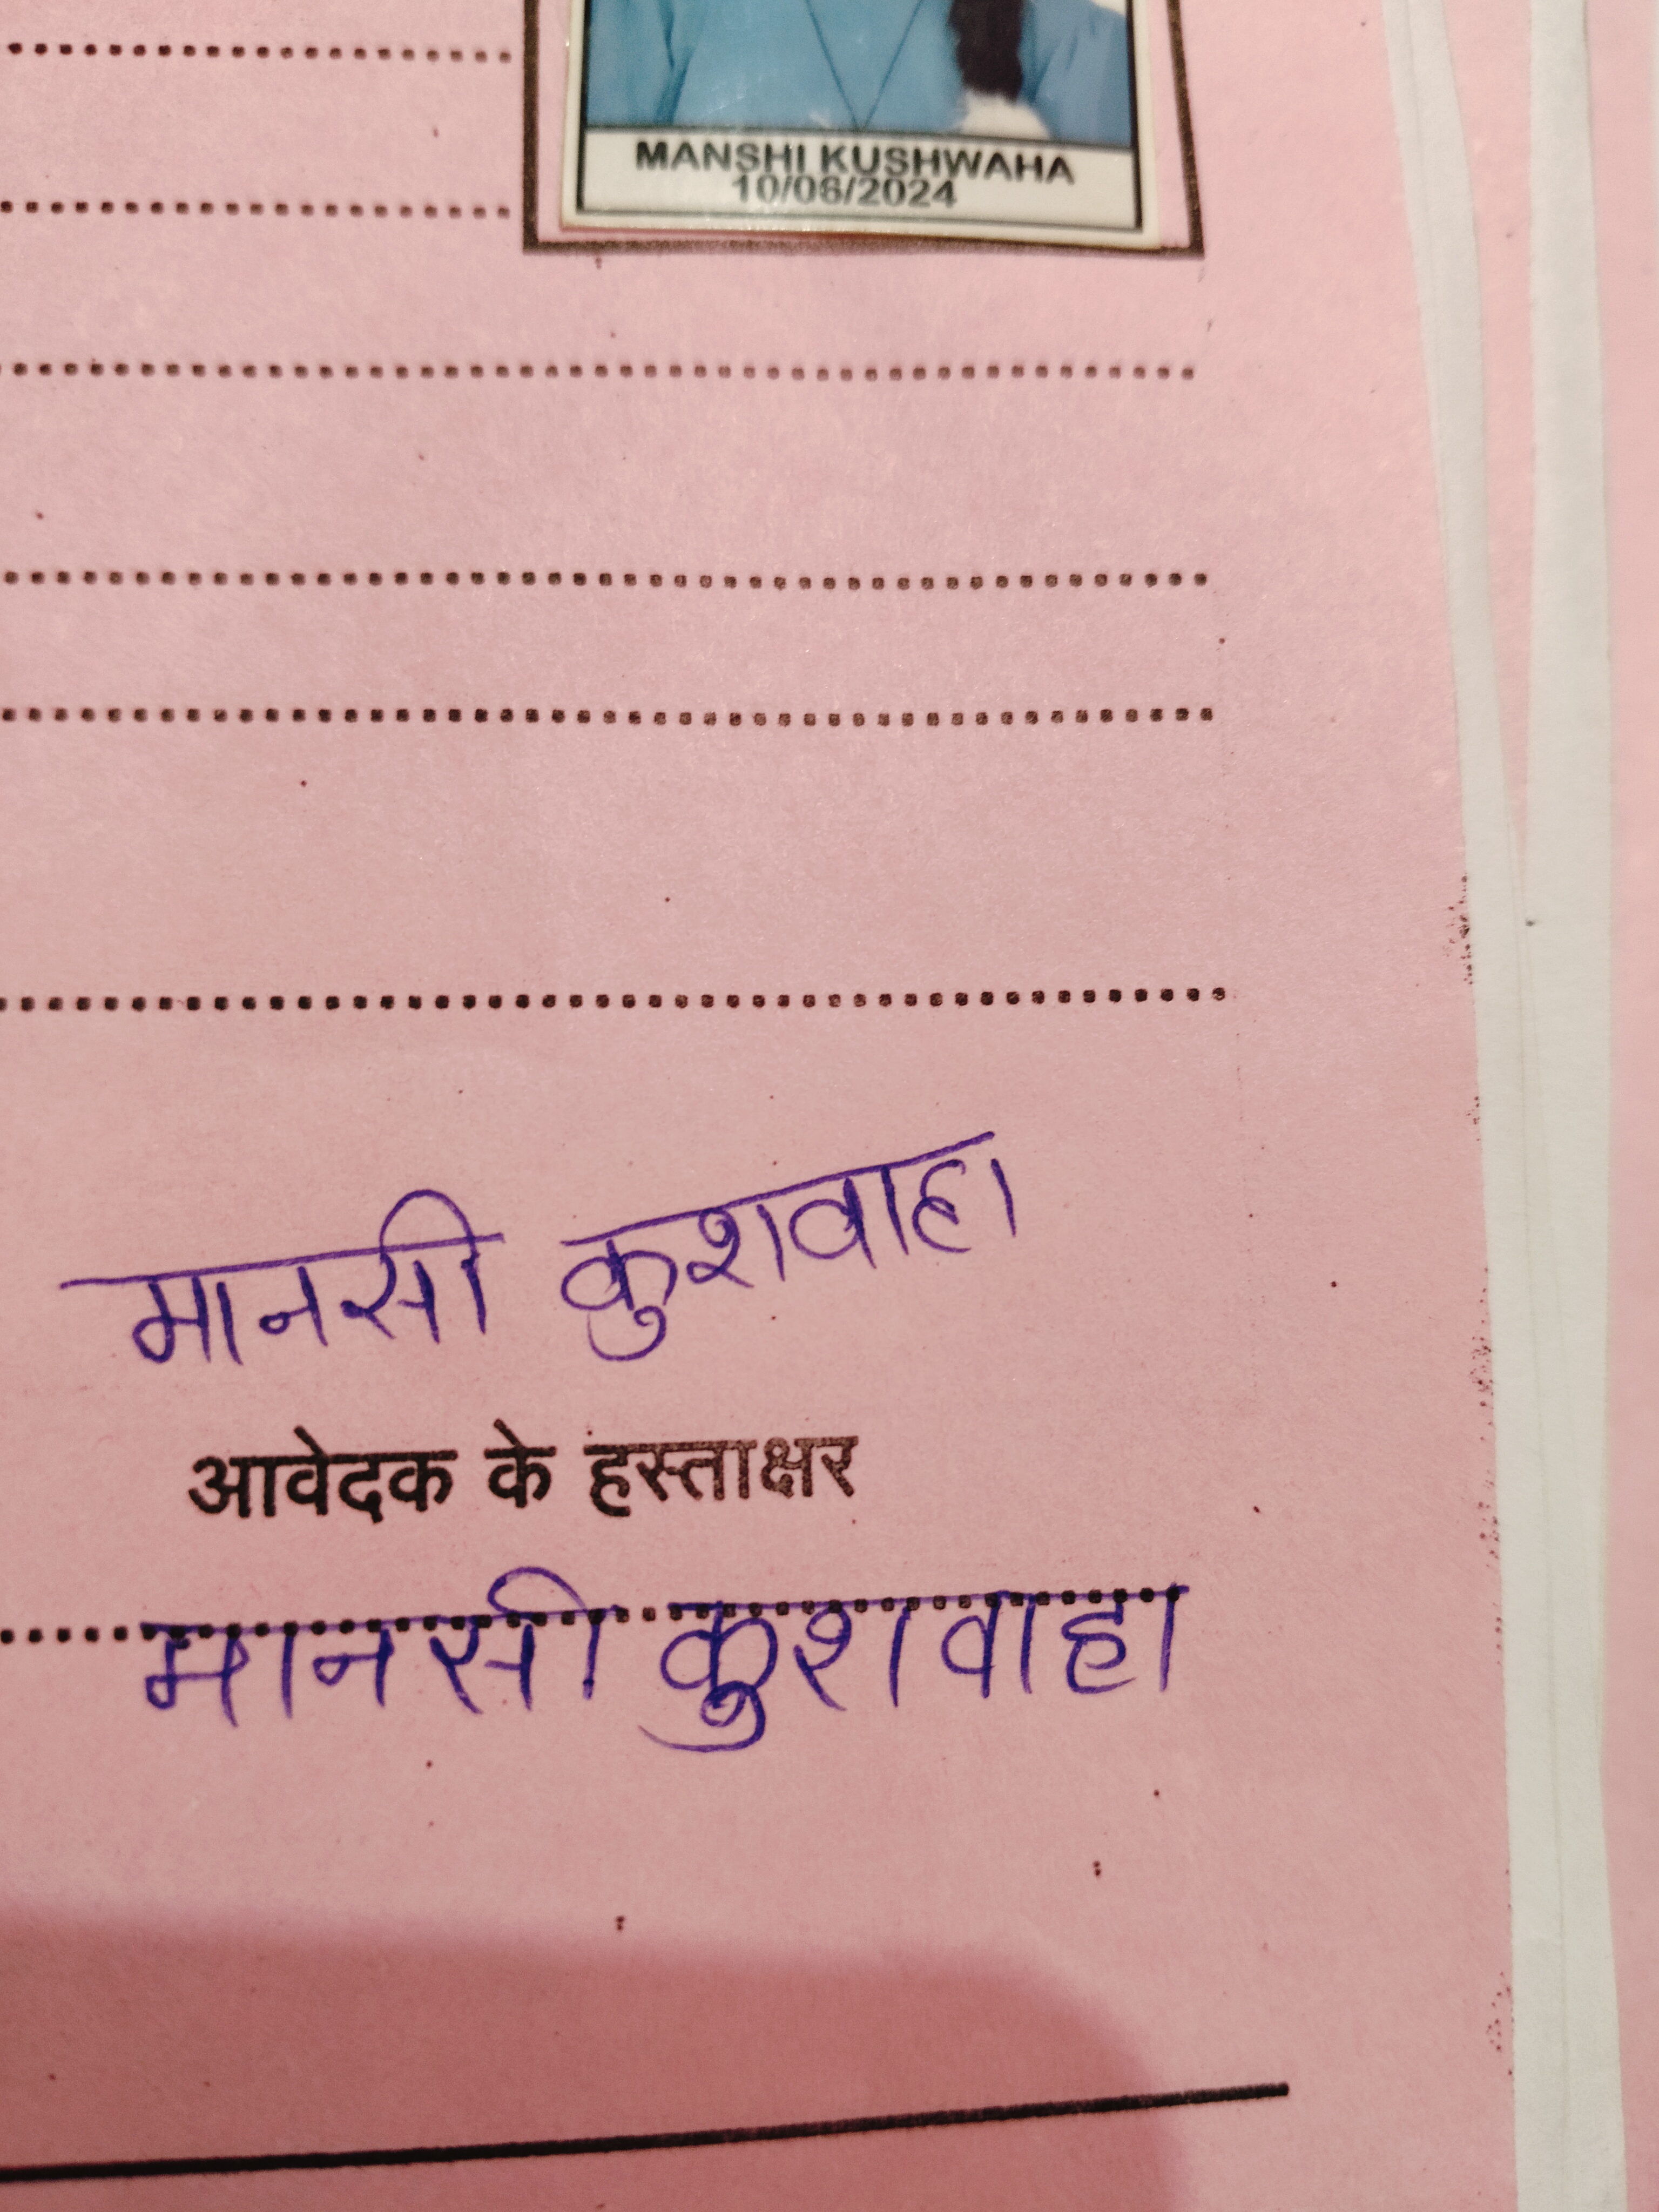 MANSHI KUSHWAHA
10/06/2024
मानसी कुशवाहा
आवेदक के हस्ताक्षर
मानसी कुशवाहा